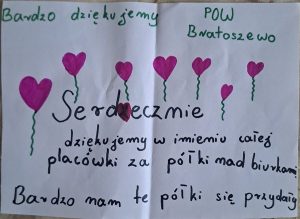 Bardzo dziękujemy POW
Bratoszewo
Serdecznie
dziękujemy w imieniu całej
placówki za półki nad biurkami
Bardzo nam te półki się przydały